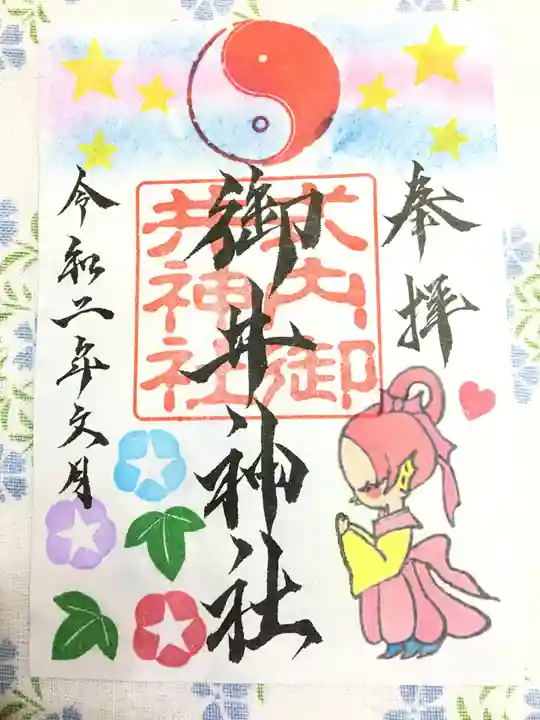 奉拝
御井神社
式内御
井神社
令和二年文月